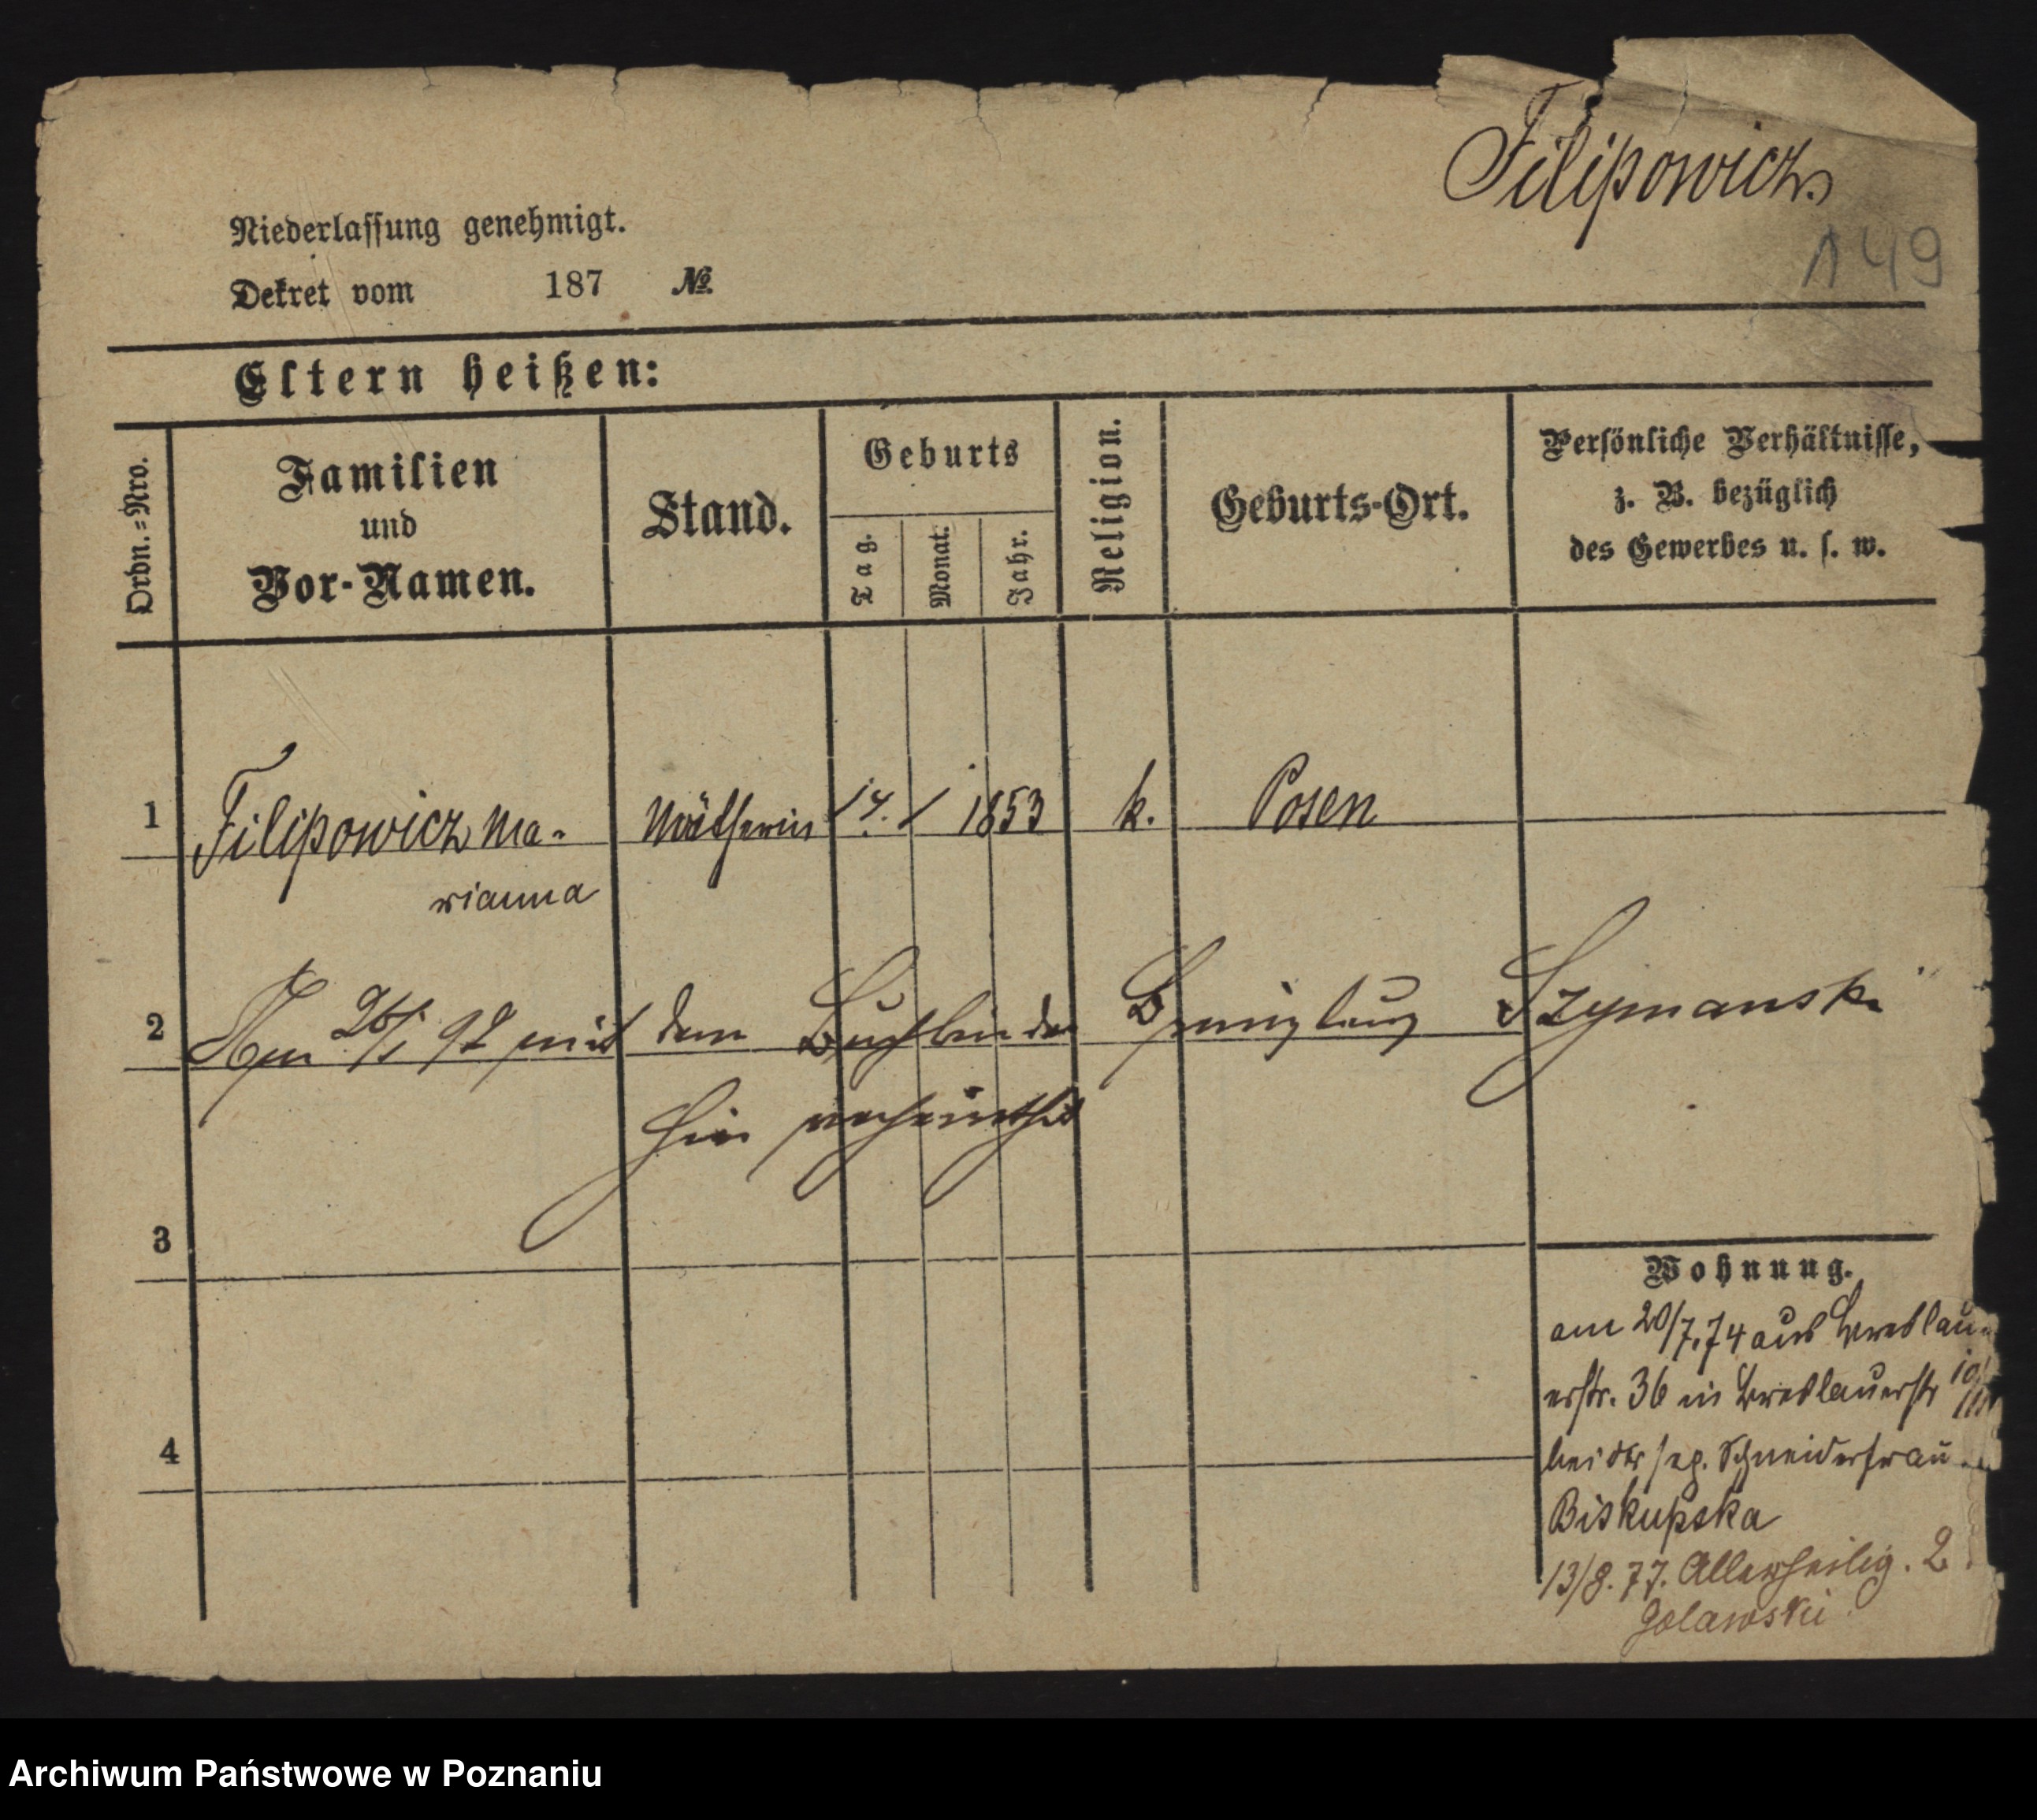 Filipowicz
149
Niederlassung genehmigt.
Dekret vom 187 №
Eltern heißen:
Ordn.=Nro.
Familien
und
Vor-Namen.
Stand.
Geburts
Tag.
Monat.
Jahr.
Religion.
Geburts-Ort.
Persönliche Verhältnisse,
z. B. bezüglich
des Gewerbes u. s. w.
1 Filipowicz Ma- Nätherin 14. 1 1853 k. Posen
rianna
2 Am 26/1 92 mit dem Buchbinder Szymanski
hier verheirathet
3
4
Wohnung.
am 20/7.74 aus Breslau
erstr. 36 in Breslauerstr
bei der sep. Schneiderfrau
Biskupska
13/8.77. Allerheilig. 2
Golawski
Archiwum Państwowe w Poznaniu